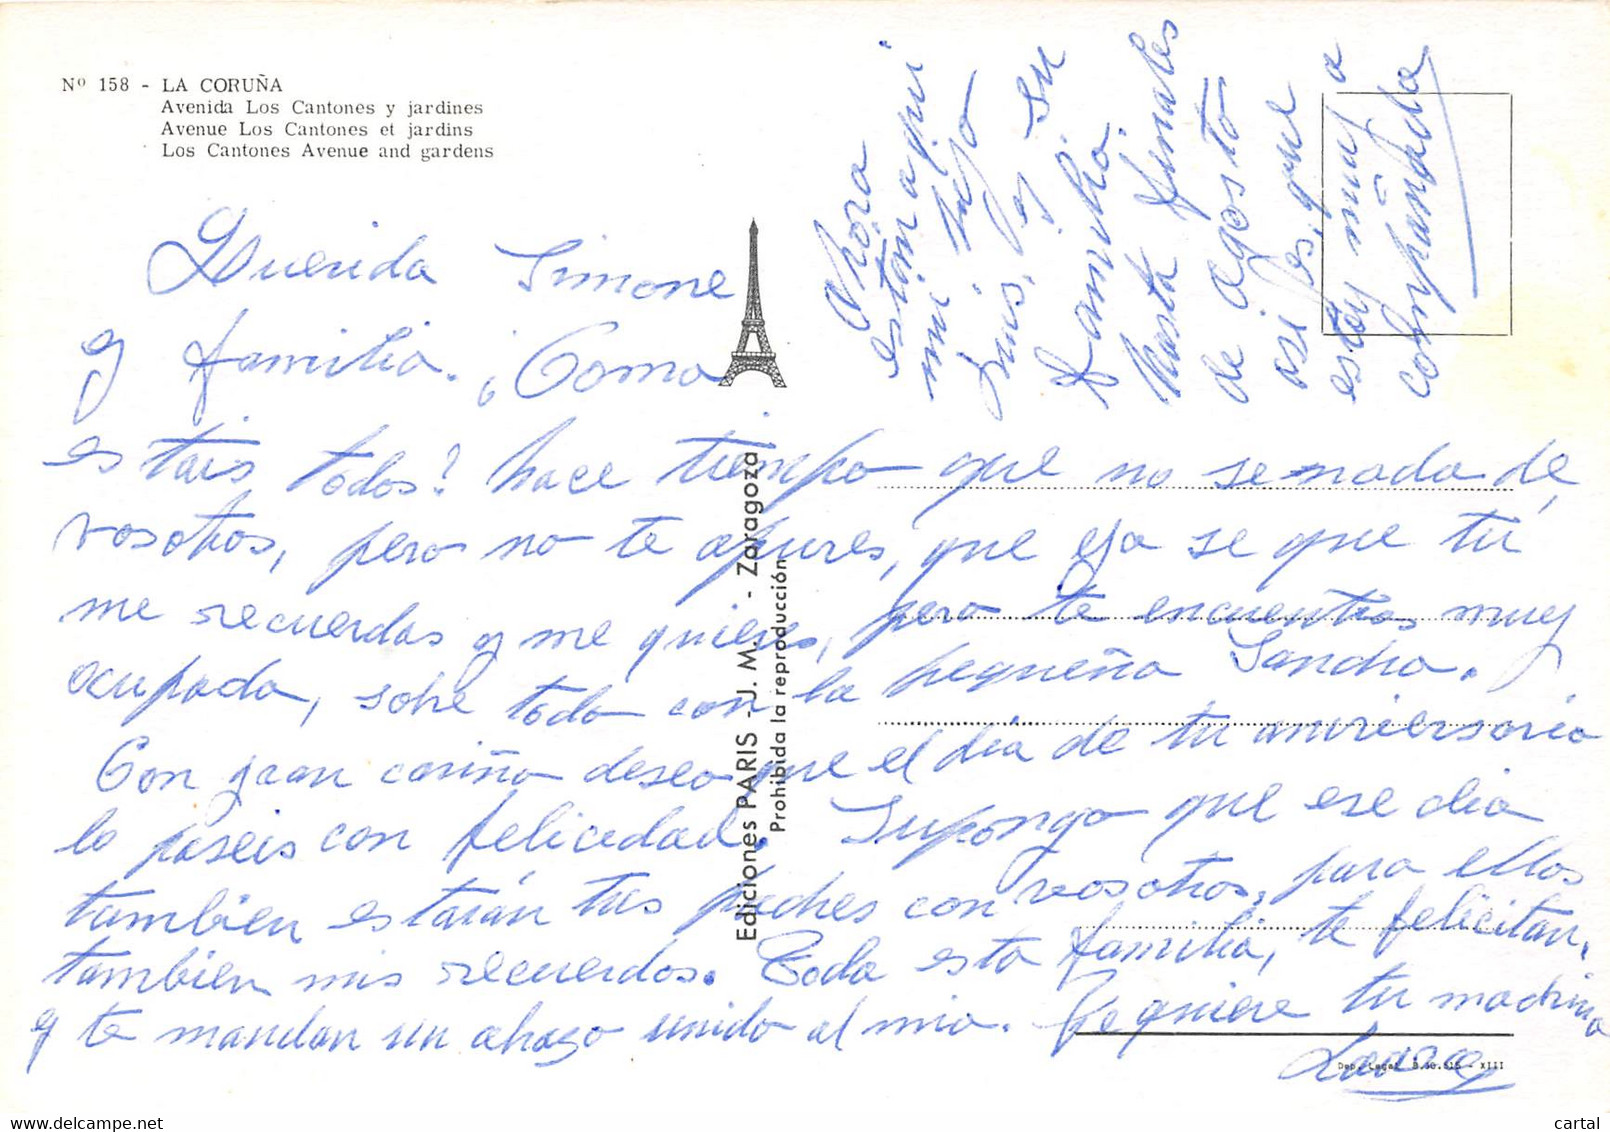 Nº 158 - LA CORUÑA
Avenida Los Cantones y jardines
Avenue Los Cantones et jardins
Los Cantones Avenue and gardens
Querida Simone
y familia. ¿Como
estais todos? hace tiempo que no se nada de
vosotros, pero no te apures, que ya se que tú
me recuerdas y me quieres, pero te encuentras muy
ocupada, sobre todo con la pequeña Sandra.
Con gran cariño deseo que el dia de tu aniversario
lo paseis con felicidad. Supongo que ese dia
tambien estarán tus padres con vosotros, para ellos
tambien mis recuerdos. Toda esta familia, te felicitan,
y te mandan un abrazo unido al mio. Te quiere tu madrina
Laura
Ahora
estan aqui
mi hijo
Luis, y su
familia.
Hasta finales
de agosto
asi es, que
estoy muy a
compañada
Ediciones PARIS - J. M. - Zaragoza
Prohibida la reproducción
Dep. Legal B. - XIII
cartal